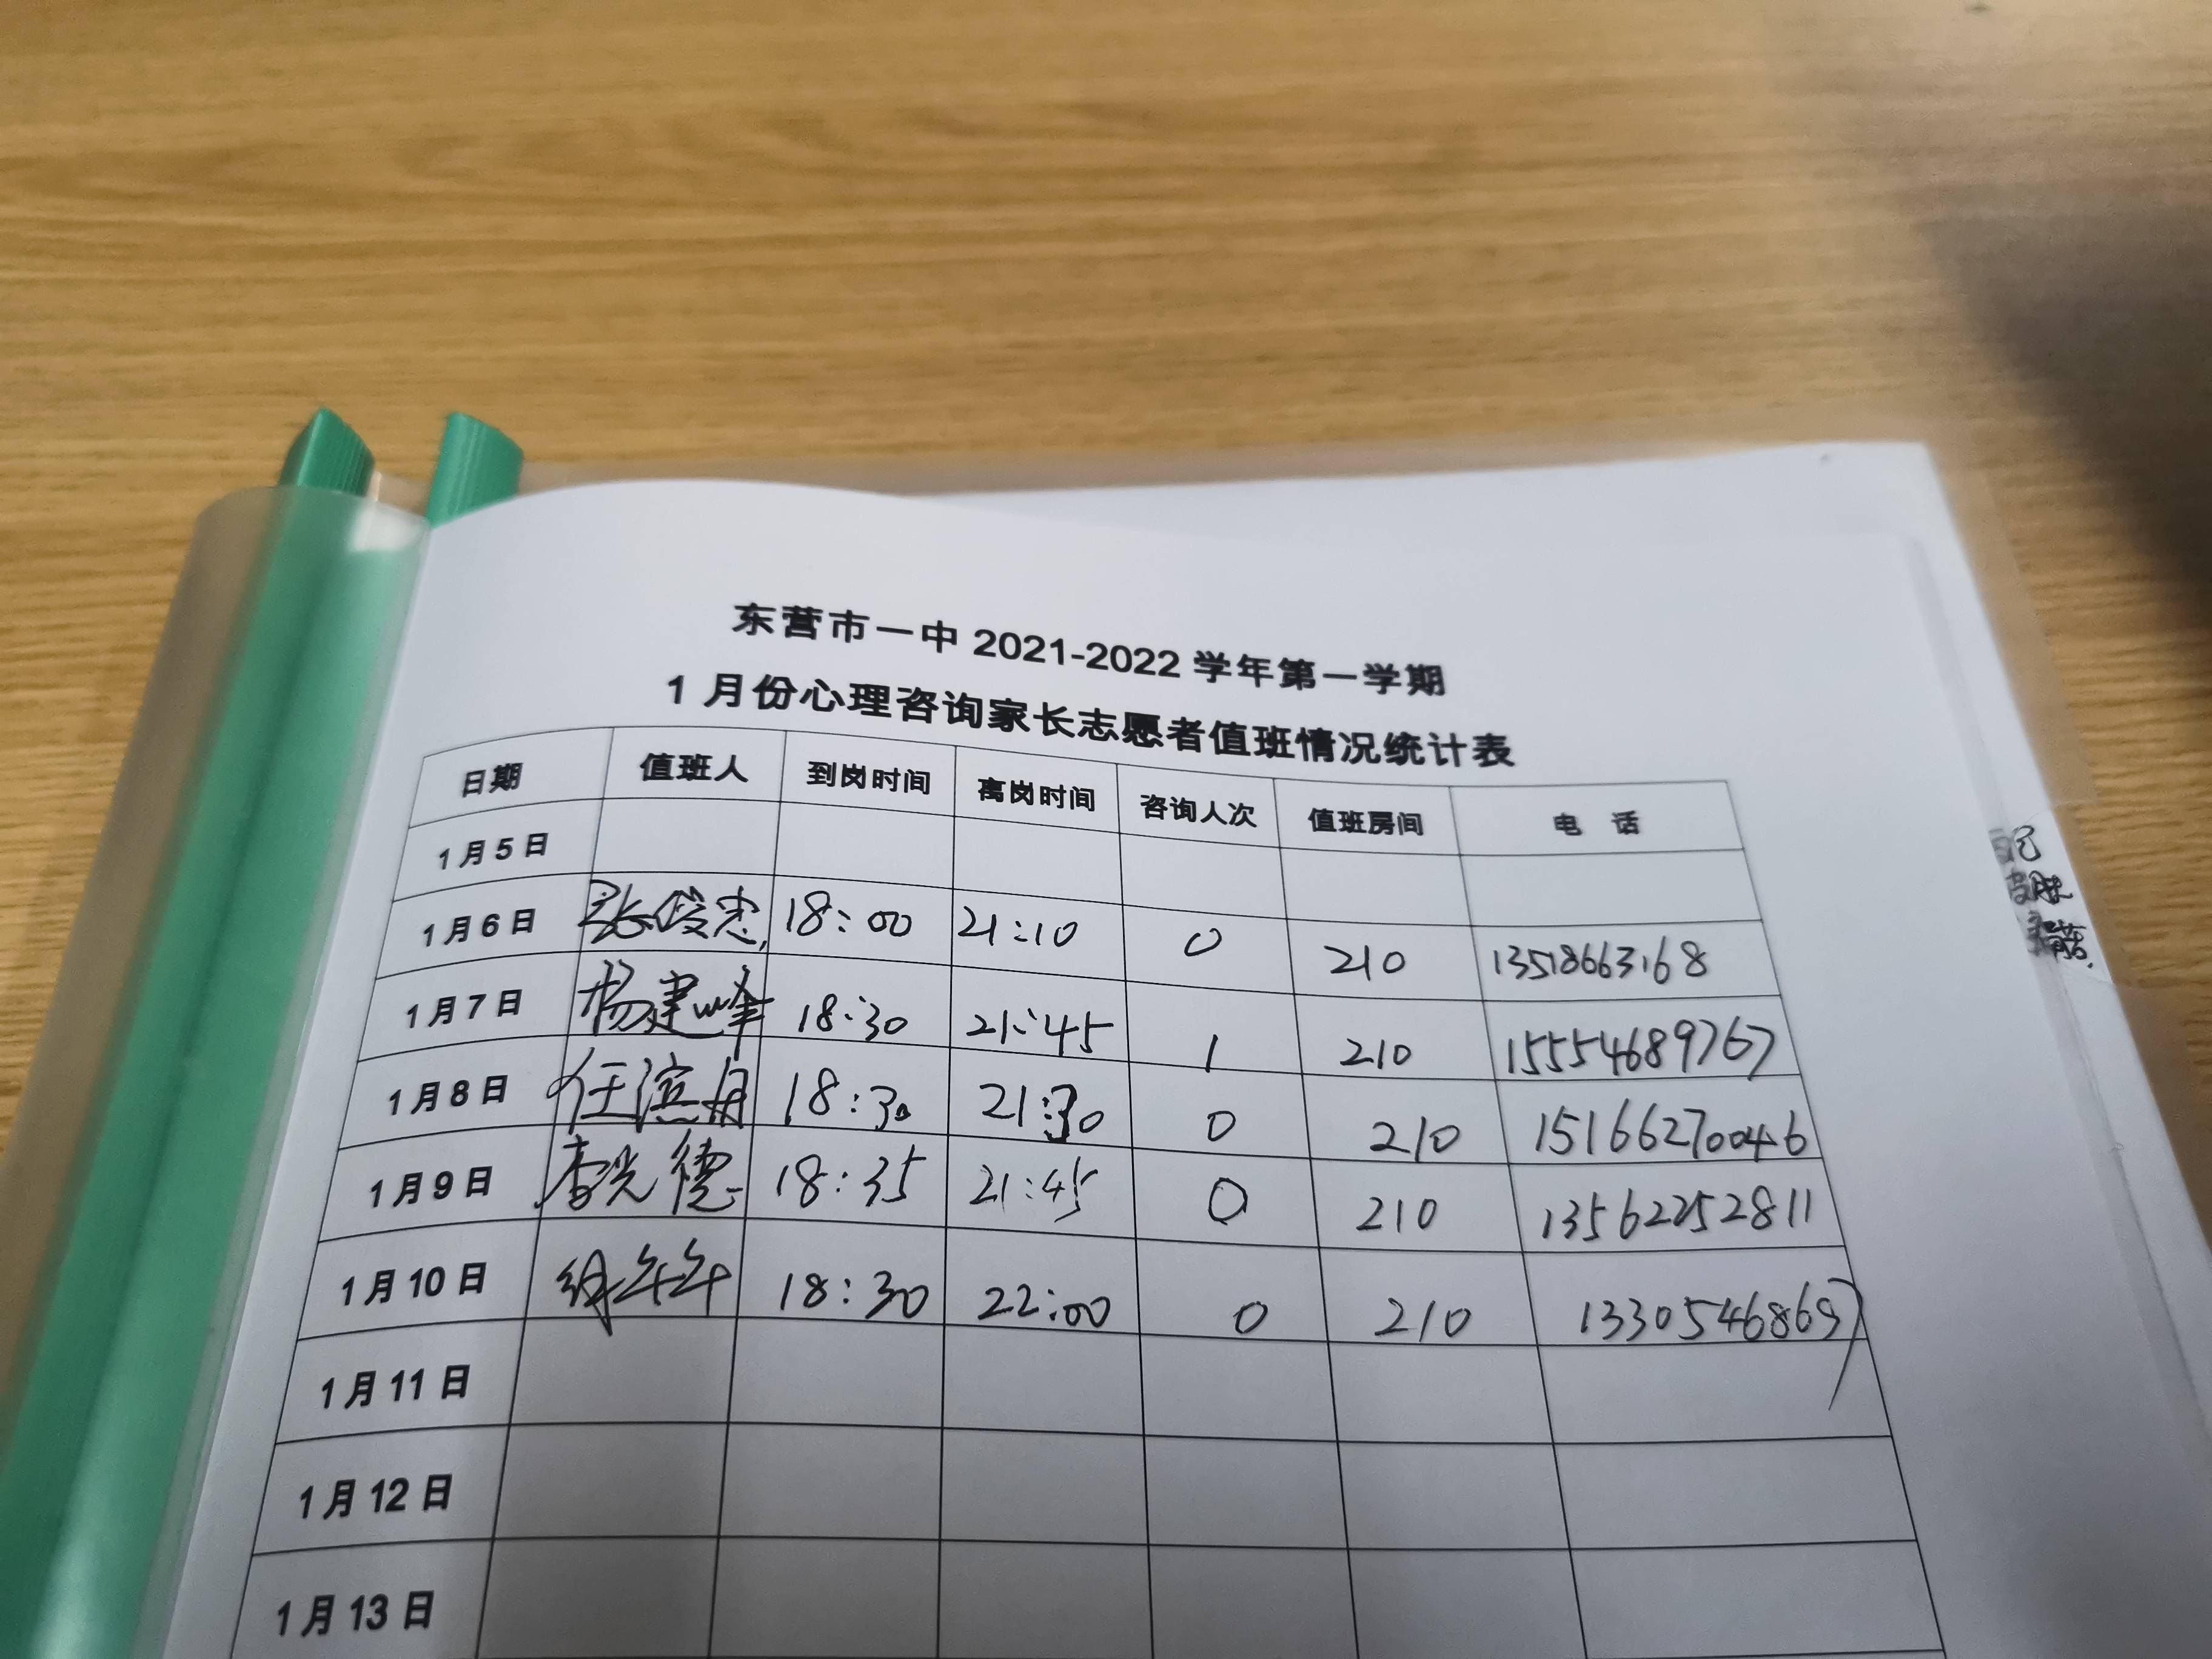 东营市一中 2021-2022 学年第一学期
1 月份心理咨询家长志愿者值班情况统计表
日期 值班人 到岗时间 离岗时间 咨询人次 值班房间 电 话
1 月 5 日
1 月 6 日 张俊忠 18:00 21:10 0 210 13518663168
1 月 7 日 杨建峰 18:30 21:45 1 210 15554689767
1 月 8 日 任滨 18:30 21:30 0 210 15166270046
1 月 9 日 李光德 18:35 21:45 0 210 13562252811
1 月 10 日 18:30 22:00 0 210 13305468697
1 月 11 日
1 月 12 日
1 月 13 日